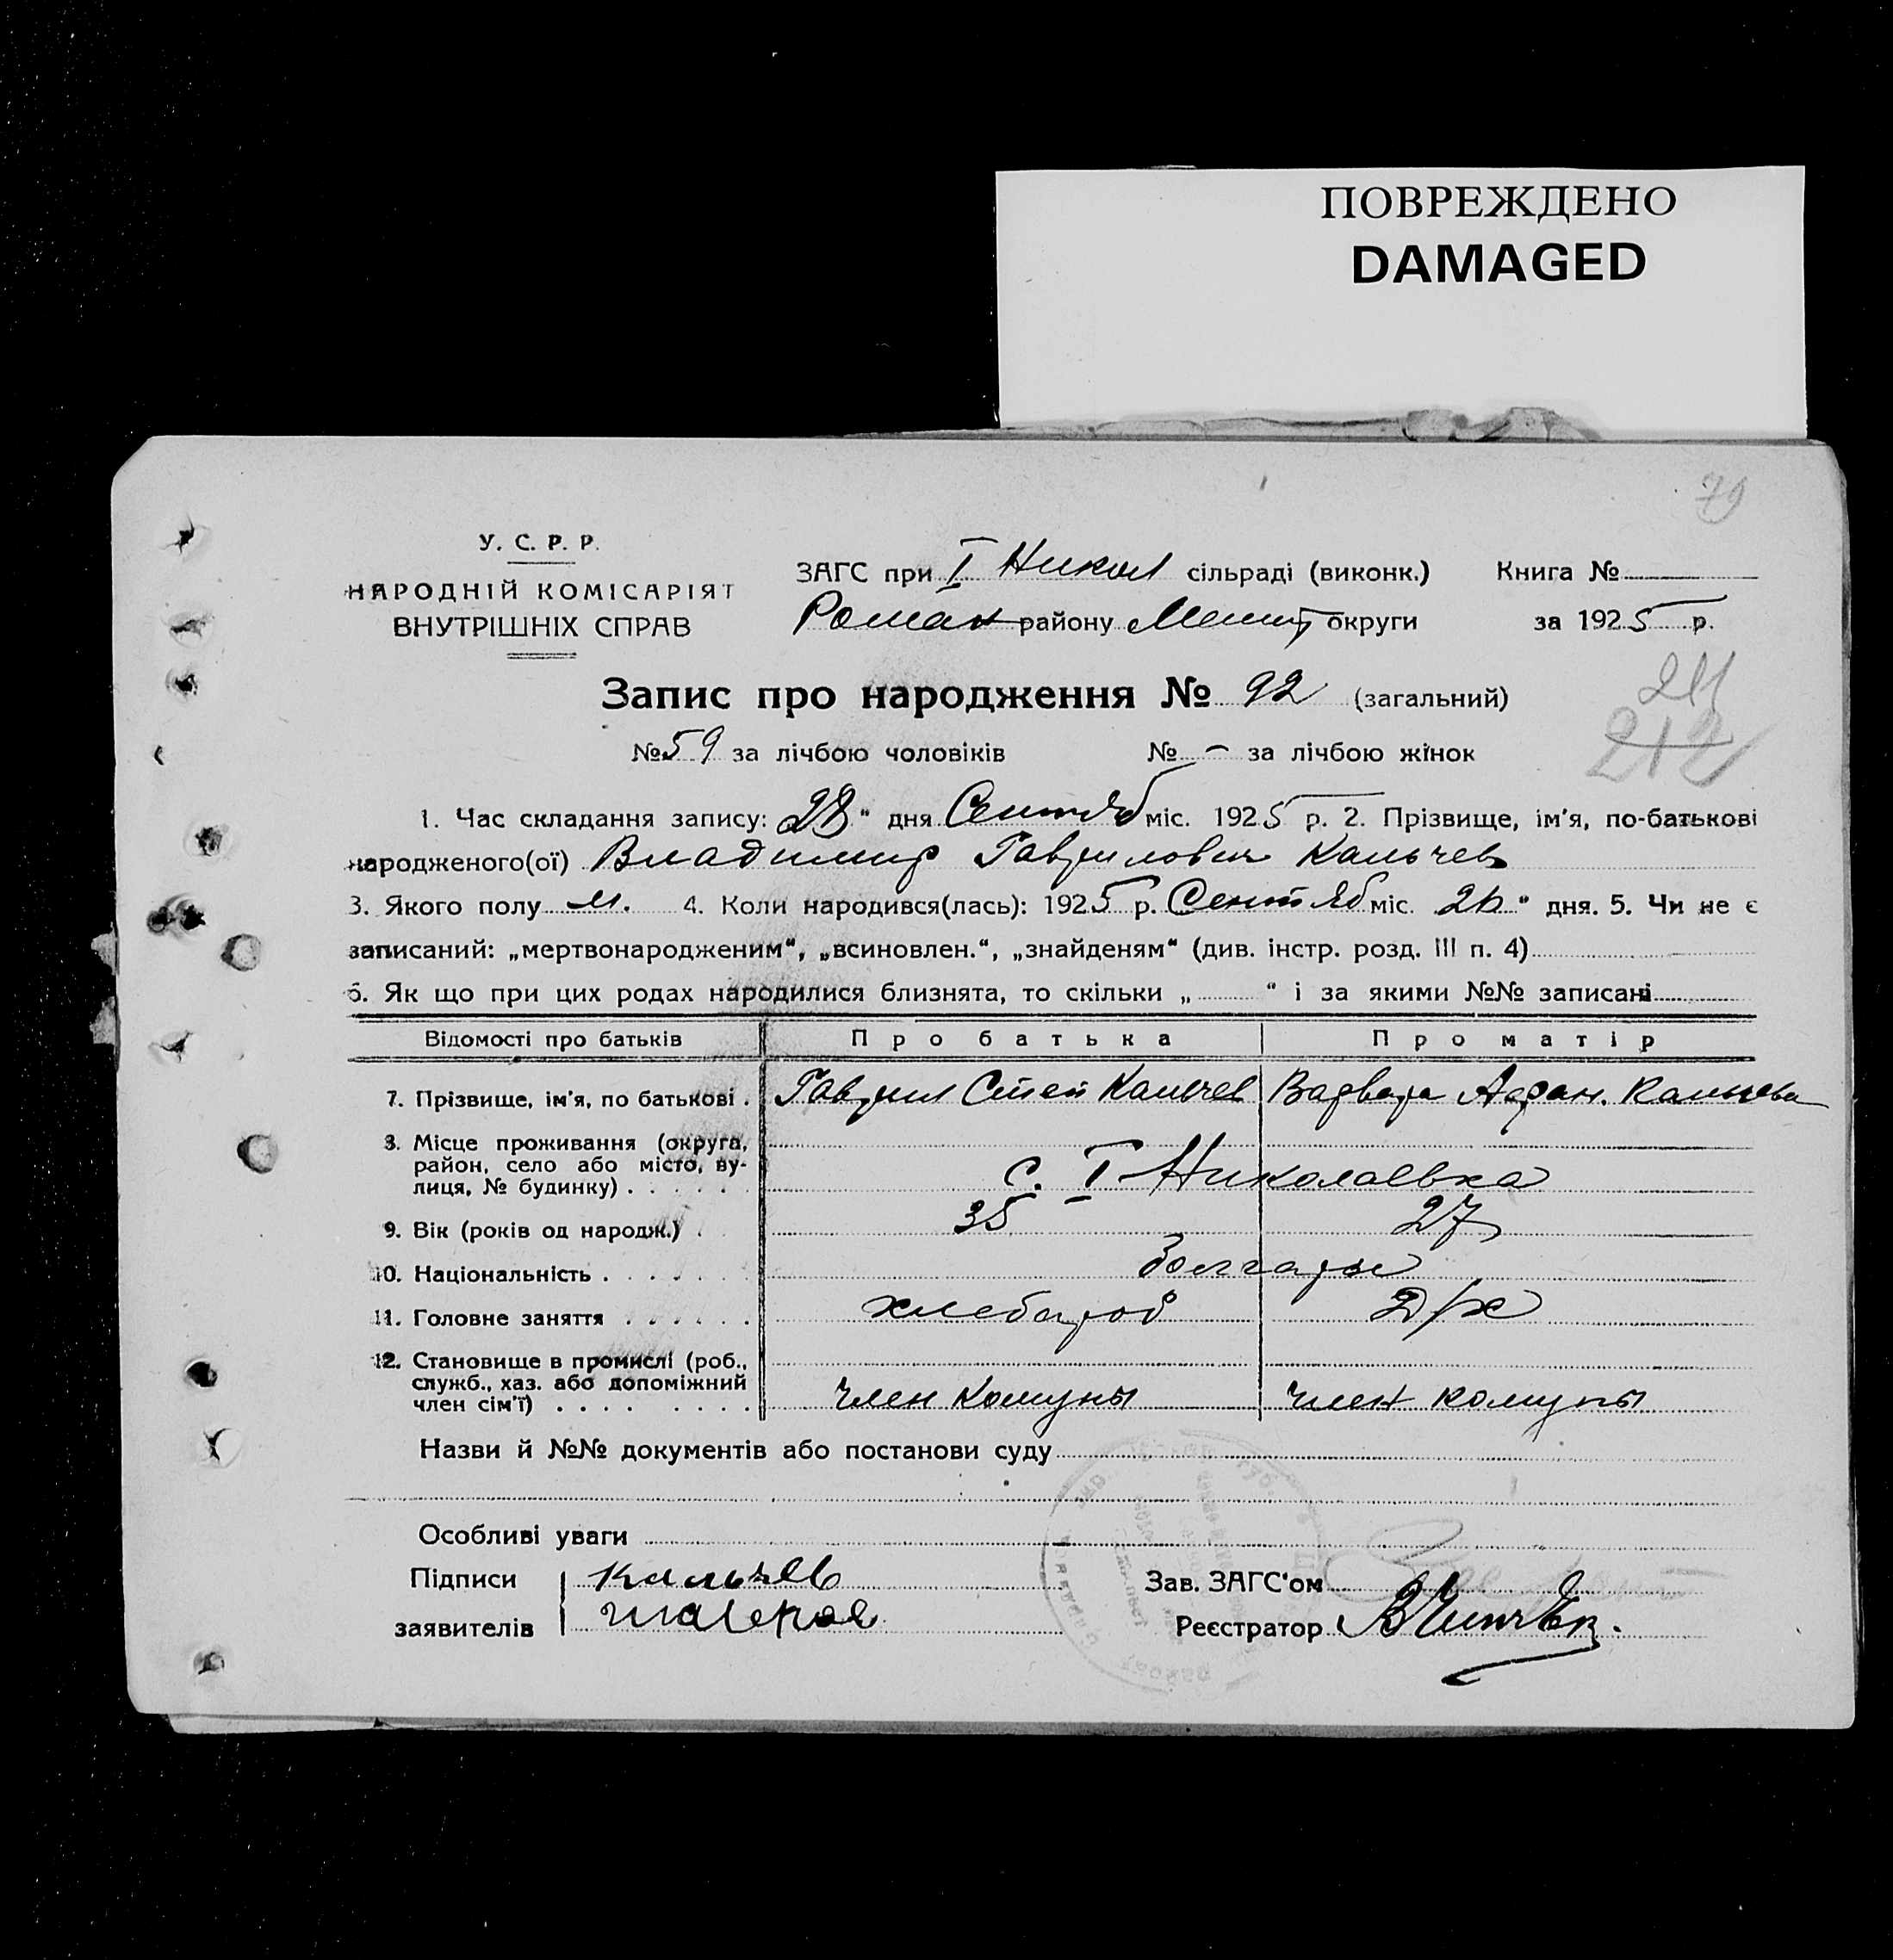 ПОВРЕЖДЕНО
DAMAGED
79
У. С. Р. Р.
НАРОДНІЙ КОМІСАРІЯТ
ВНУТРІШНІХ СПРАВ
ЗАГС при I Никол сільраді (виконк.) Книга №
Роман району Мелит округи за 1925 р.
Запис про народження № 92 (загальний)
211
212
№ 59 за лічбою чоловіків № - за лічбою жінок
1. Час складання запису: 28 " дня Сентяб міс. 1925 р. 2. Прізвище, ім'я, по-батькові
народженого(ої) Владимир Гаврилович Кальчев
3. Якого полу м. 4. Коли народився(лась): 1925 р. Сентяб міс. 26 " дня. 5. Чи не є
записаний: „мертвонародженим“, „всиновлен.“, „знайденям“ (див. інстр. розд. III п. 4)
6. Як що при цих родах народилися близнята, то скільки „ “ і за якими №№ записані
Відомості про батьків Про батька Про матір
7. Прізвище, ім'я, по батькові . Гаврил Степ Кальчев Варвара Афан. Кальчева
8. Місце проживання (округа,
район, село або місто, ву-
лиця, № будинку) . . . . . . с. I Николаевка
9. Вік (років од народж.) . 35 27
10. Національність . . . . . . . болгары
11. Головне заняття . . . . . . хлебороб Д/х
12. Становище в промислі (роб.,
служб., хаз. або допоміжний
член сім'ї) . . . . . . . . член Комуны член комуны
Назви й №№ документів або постанови суду
Особливі уваги
Підписи Кальчев
заявителів
Зав. ЗАГС'ом
Реєстратор